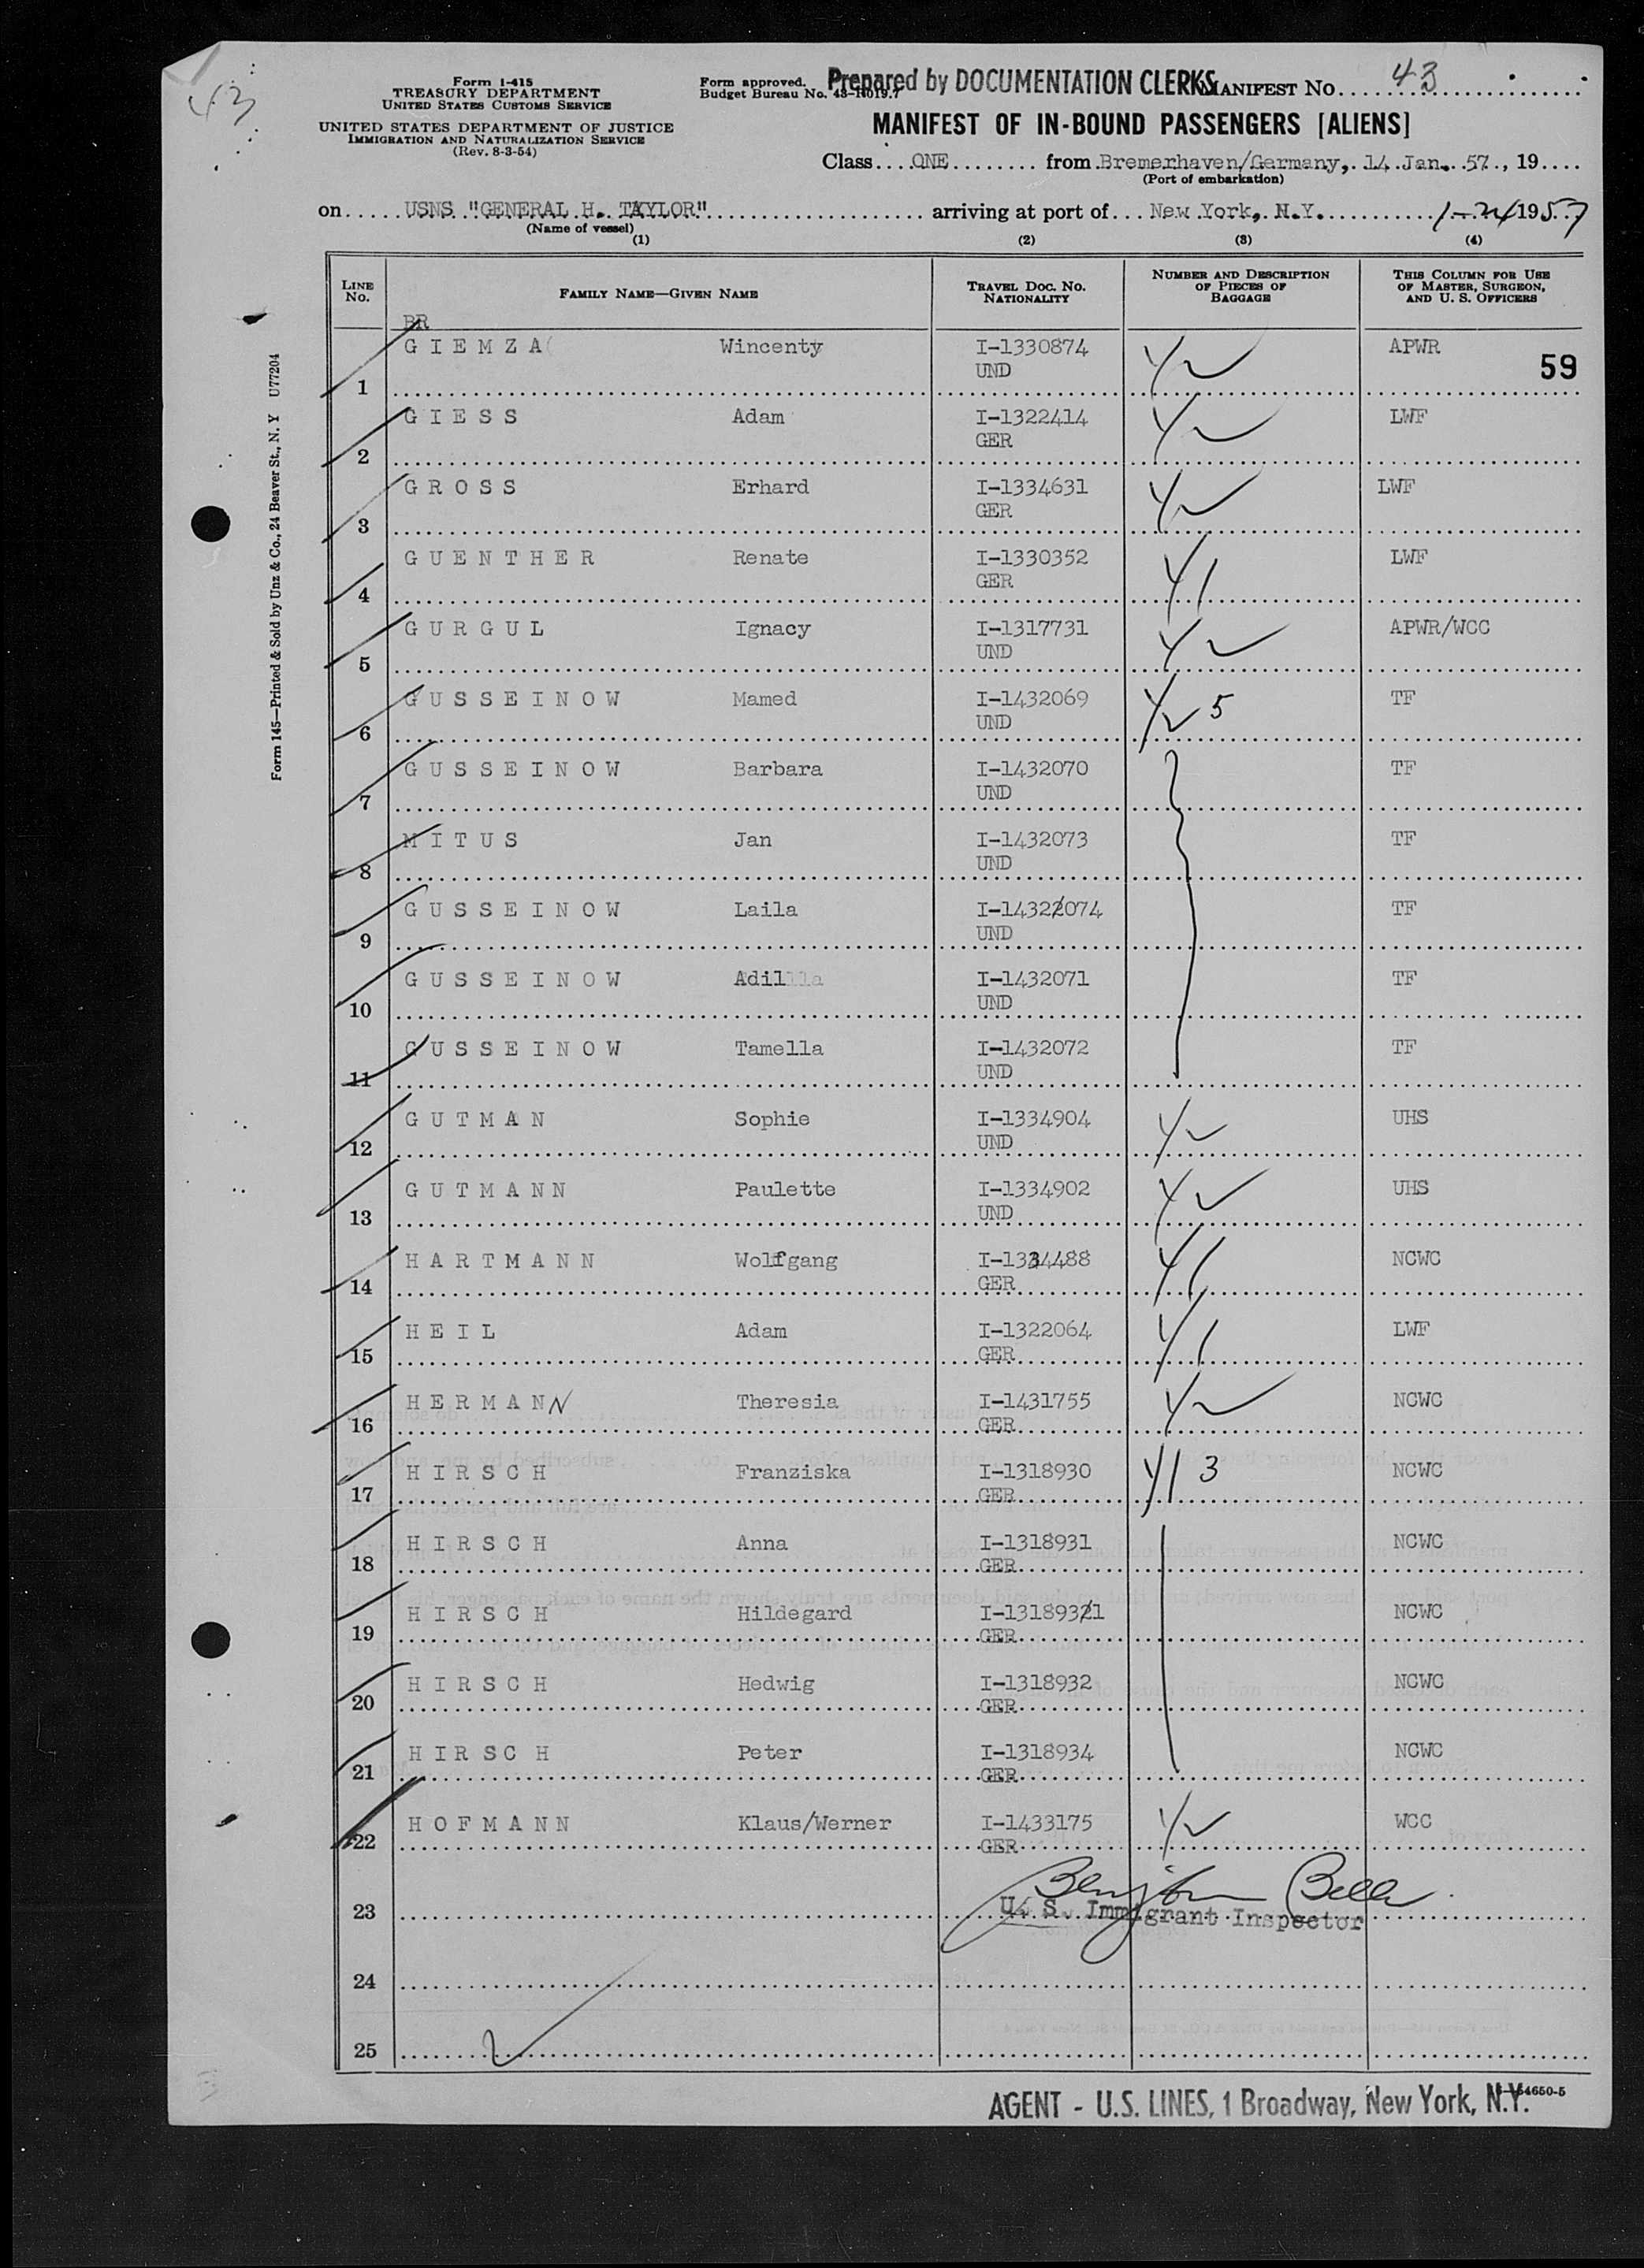 43
Form I-415
TREASURY DEPARTMENT
UNITED STATES CUSTOMS SERVICE
UNITED STATES DEPARTMENT OF JUSTICE
IMMIGRATION AND NATURALIZATION SERVICE
(Rev. 8-3-54)
Form approved.
Budget Bureau No. 43-R019.7
Prepared by DOCUMENTATION CLERKS
MANIFEST No. 43
MANIFEST OF IN-BOUND PASSENGERS [ALIENS]
Class ONE from Bremerhaven/Germany, 14 Jan. 57, 19
(Port of embarkation)
on USNS "GENERAL H. TAYLOR" arriving at port of New York, N.Y. 1-24 1957
(Name of vessel)
(1) (2) (3) (4)
LINE No. FAMILY NAME—GIVEN NAME TRAVEL DOC. NO. NATIONALITY NUMBER AND DESCRIPTION OF PIECES OF BAGGAGE THIS COLUMN FOR USE OF MASTER, SURGEON, AND U. S. OFFICERS
BR
59
1 GIEMZA Wincenty I-1330874 UND APWR
2 GIESS Adam I-1322414 GER LWF
3 GROSS Erhard I-1334631 GER LWF
4 GUENTHER Renate I-1330352 GER LWF
5 GURGUL Ignacy I-1317731 UND APWR/WCC
6 GUSSEINOW Mamed I-1432069 UND 5 TF
7 GUSSEINOW Barbara I-1432070 UND TF
8 MITUS Jan I-1432073 UND TF
9 GUSSEINOW Laila I-14322074 UND TF
10 GUSSEINOW Adil I-1432071 UND TF
11 GUSSEINOW Tamella I-1432072 UND TF
12 GUTMAN Sophie I-1334904 UND UHS
13 GUTMANN Paulette I-1334902 UND UHS
14 HARTMANN Wolfgang I-1334488 GER NCWC
15 HEIL Adam I-1322064 GER LWF
16 HERMANN Theresia I-1431755 GER NCWC
17 HIRSCH Franziska I-1318930 GER 3 NCWC
18 HIRSCH Anna I-1318931 GER NCWC
19 HIRSCH Hildegard I-13189321 GER NCWC
20 HIRSCH Hedwig I-1318932 GER NCWC
21 HIRSCH Peter I-1318934 GER NCWC
22 HOFMANN Klaus/Werner I-1433175 GER WCC
23 U. S. Immigrant Inspector
24
25
AGENT - U.S. LINES, 1 Broadway, New York, N.Y.
Form 145—Printed & Sold by Unz & Co., 24 Beaver St., N. Y U77204